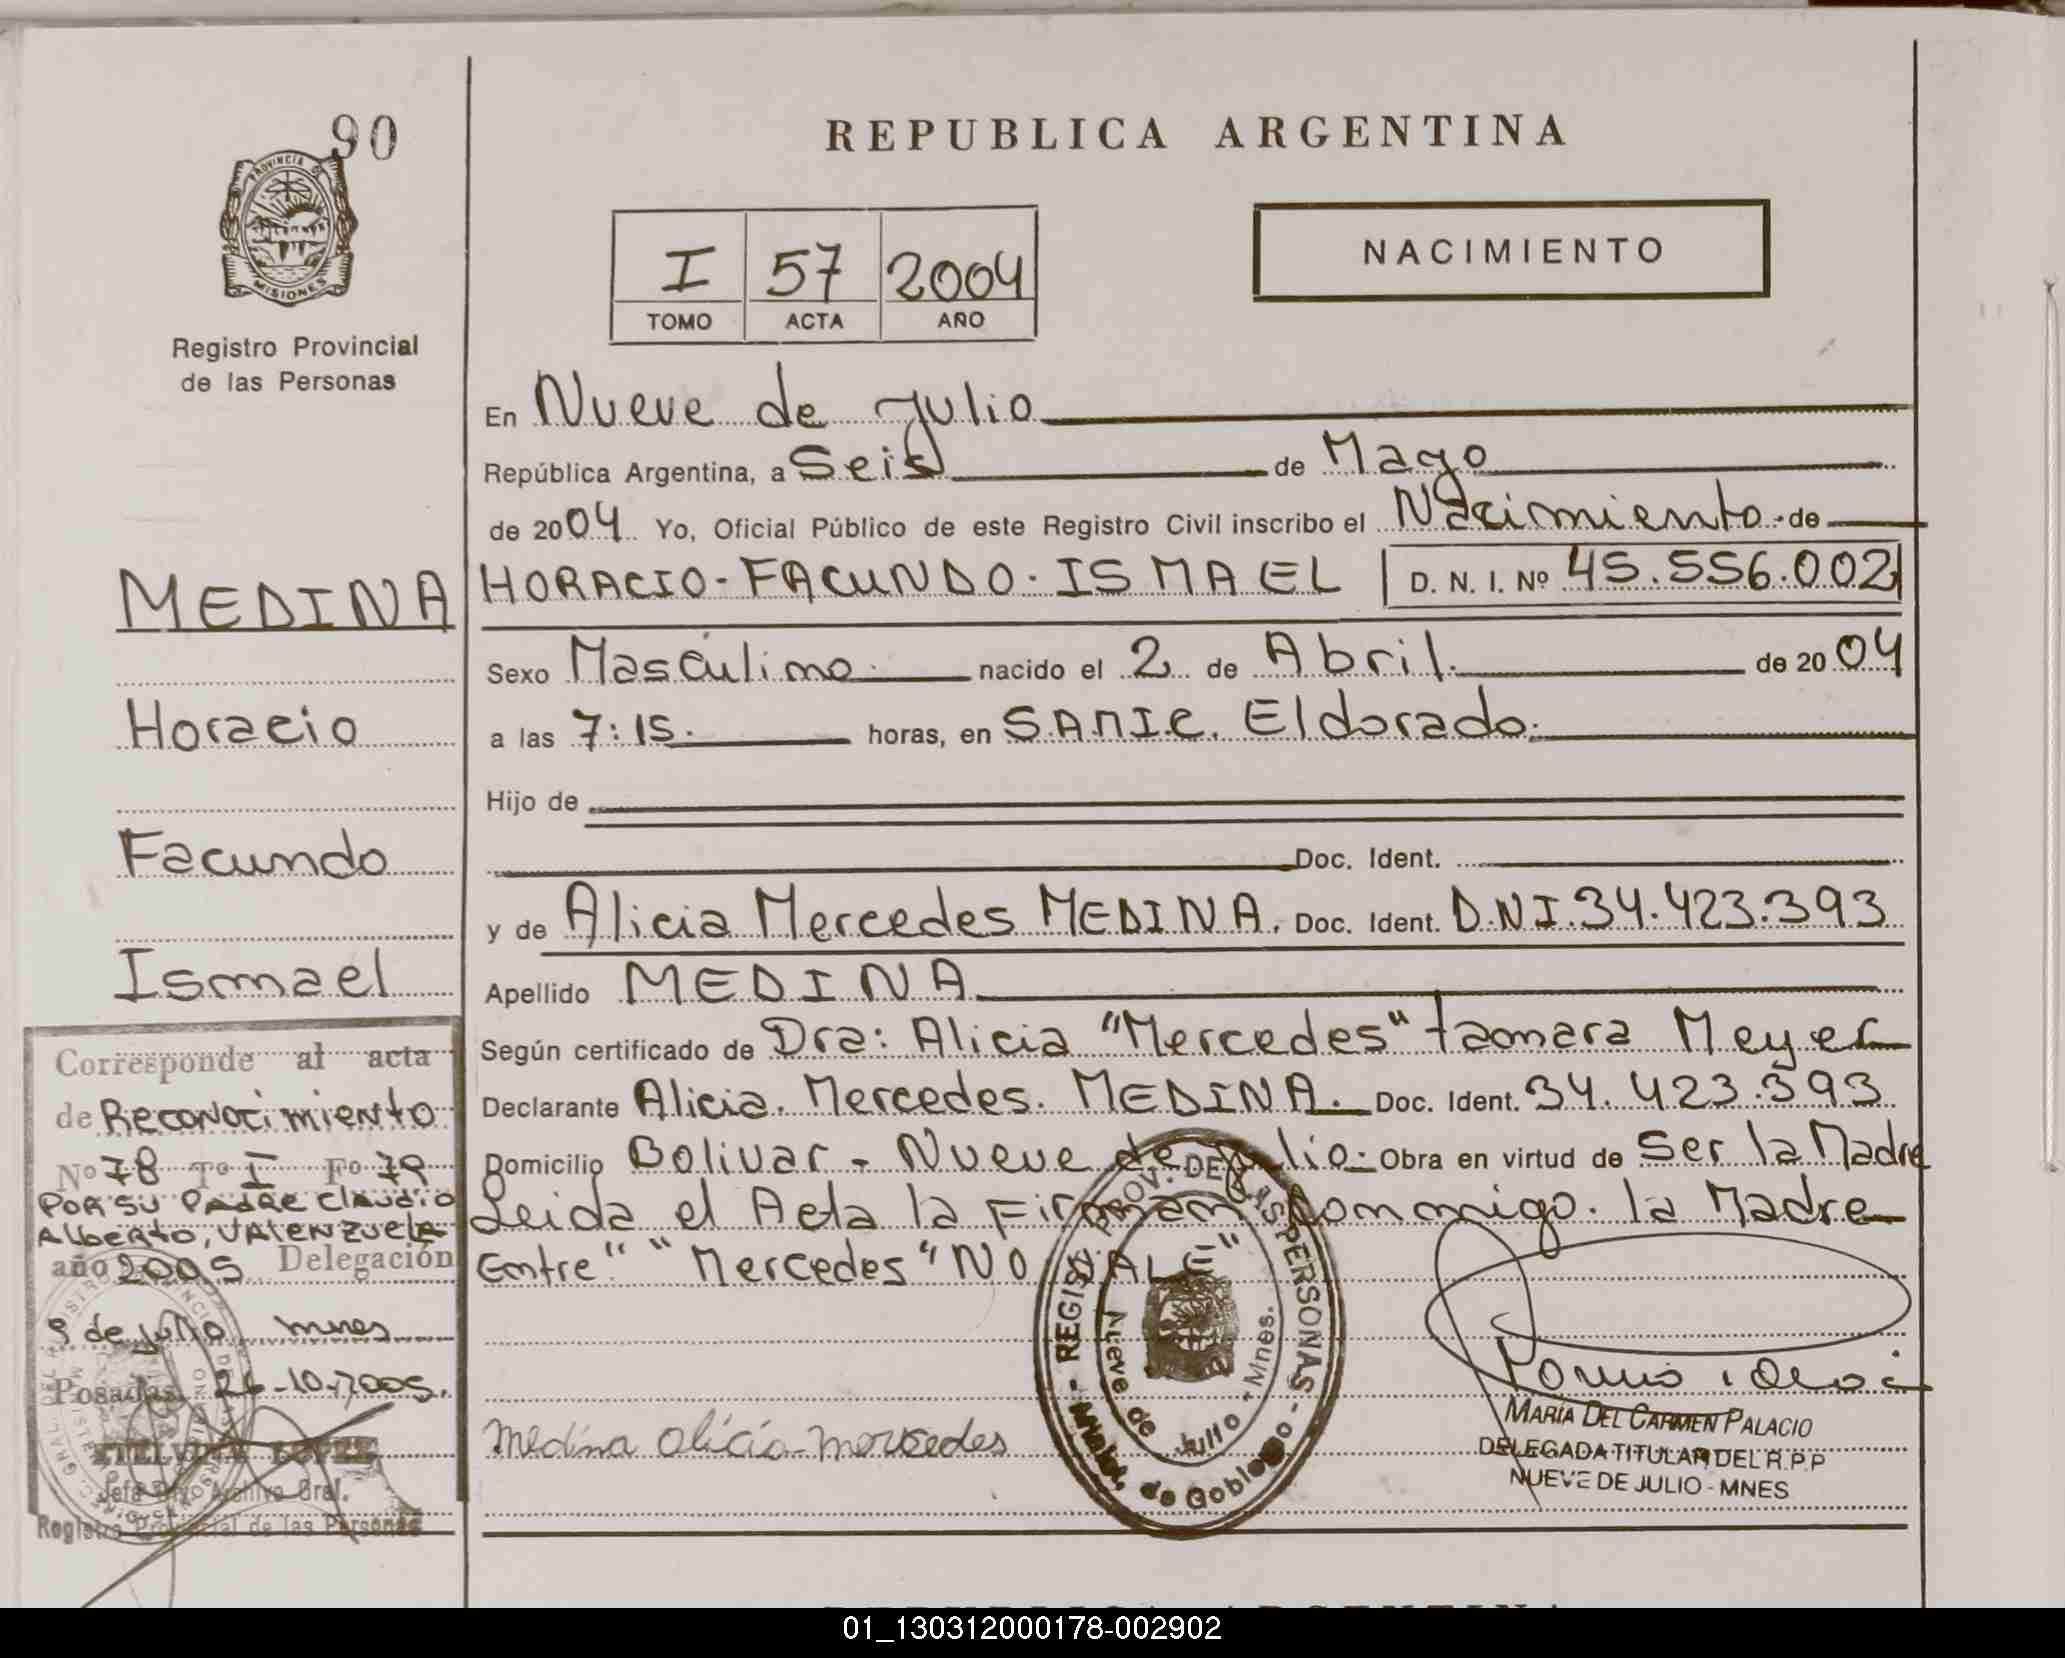 90
PROVINCIA DE
MISIONES
Registro Provincial
de las Personas
REPUBLICA ARGENTINA
I 57 2004
TOMO ACTA AÑO
NACIMIENTO
En Nueve de Julio
República Argentina, a Seis de Mayo
de 2004 Yo, Oficial Público de este Registro Civil inscribo el Nacimiento de
MEDINA
HORACIO-FACUNDO-ISMAEL D. N. I. Nº 45.556.002
Sexo Masculino nacido el 2 de Abril de 2004
Horacio
a las 7:15. horas, en S.A.M.I.C. Eldorado.
Hijo de
Facundo
Doc. Ident.
y de Alicia Mercedes MEDINA. Doc. Ident. D.N.I.34.423.393
Ismael
Apellido MEDINA
Según certificado de Dra: Alicia "Mercedes" tamara Meyer
Declarante Alicia. Mercedes. MEDINA. Doc. Ident. 34.423.393
Domicilio Bolivar - Nueve de Julio. Obra en virtud de Ser la Madre
Leida el Acta la Firman Conmigo. la Madre
Entre" "Mercedes" NO VALE"
Corresponde al acta
de Reconocimiento
Nº 78 Tº I Fº 79
POR SU PADRE Claudio
Alberto, VALENZUELA
año 2005 Delegación
9 de Julio mnes
Posadas 26-10-2005.
Jefa Dvo Archivo Gral.
Registro Provincial de las Personas
Medina alicia mercedes
REGIST. PROV. DE LAS PERSONAS
Nueve de Julio - Mnes.
de Gobierno
MARÍA DEL CARMEN PALACIO
DELEGADA TITULAR DEL R.P.P
NUEVE DE JULIO - MNES
REPUBLICA ARGENTINA
01_130312000178-002902